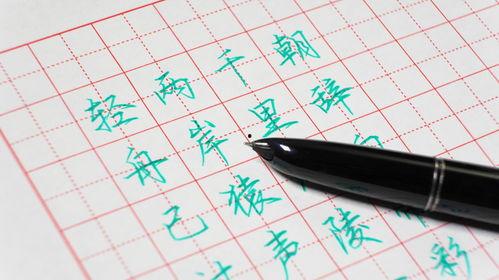 朝辞彩
千里陵
两岸猿声
轻舟己